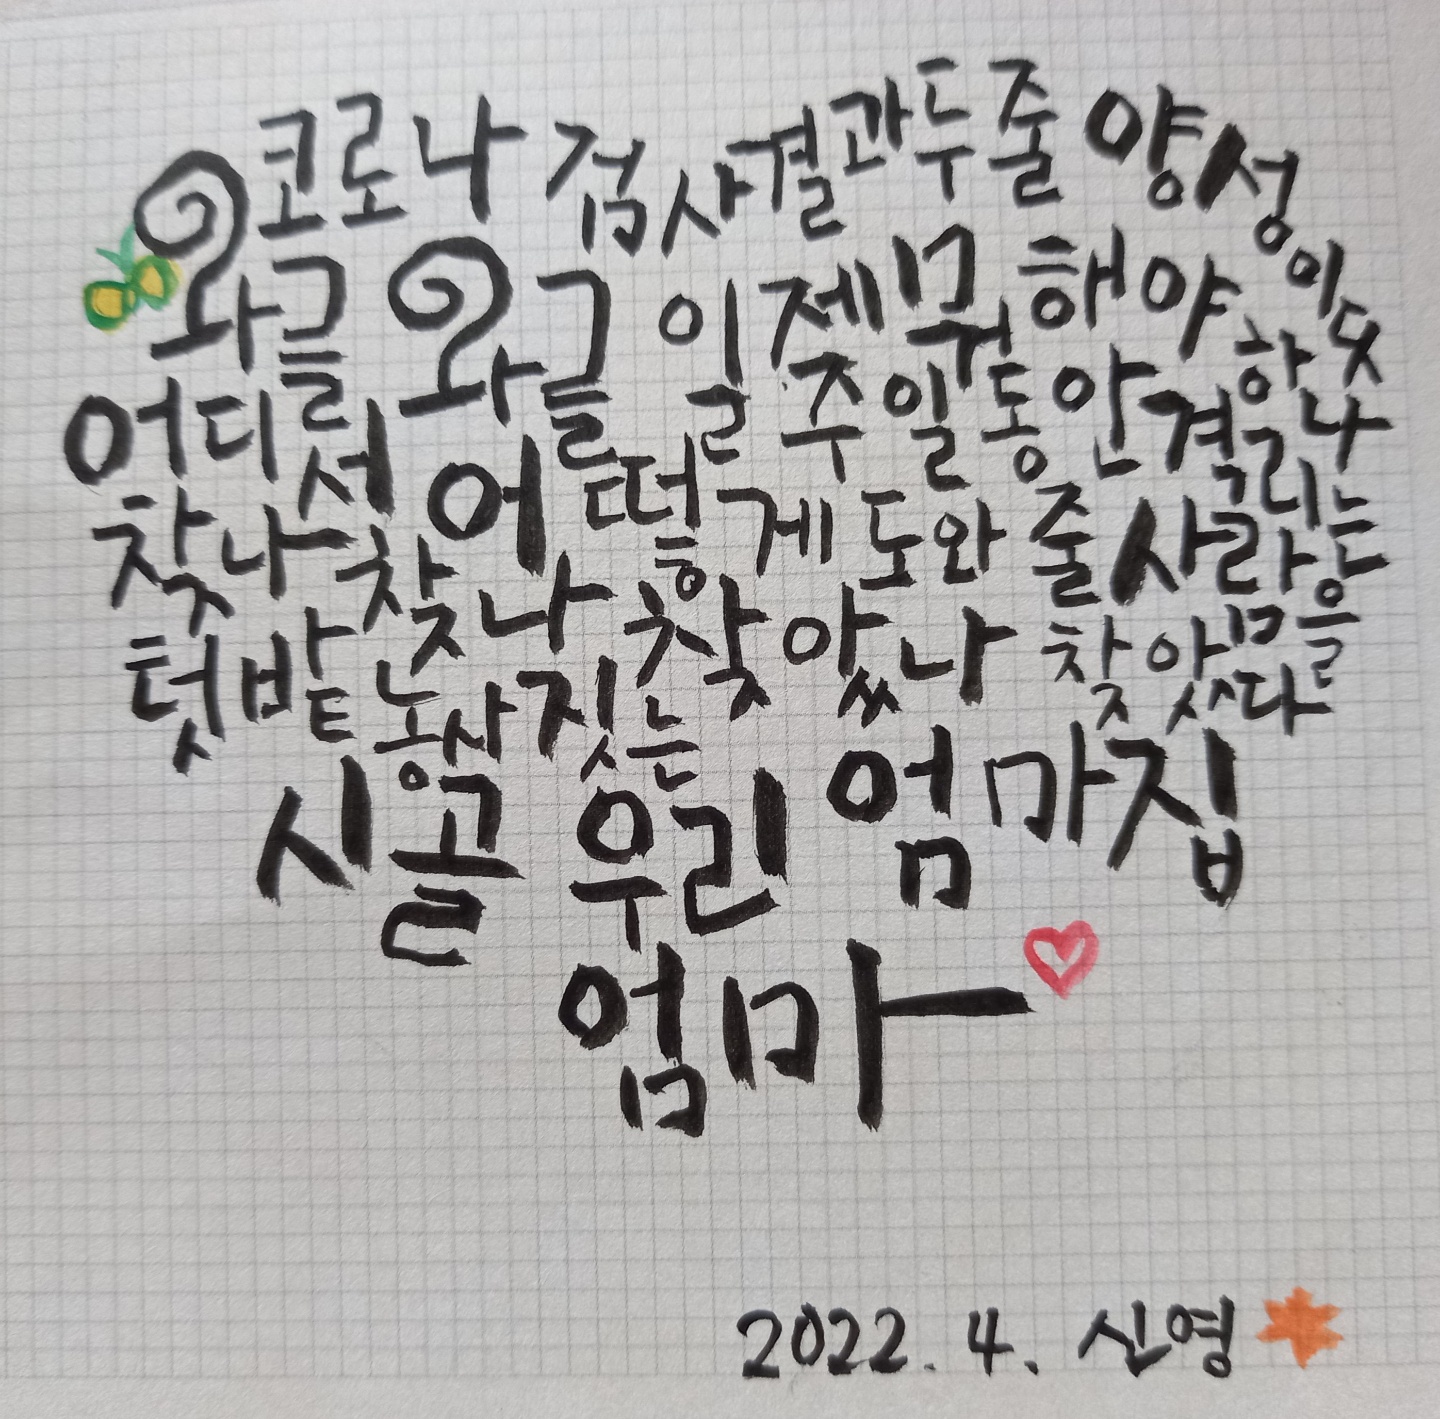 코로나 검사결과 두줄 양성이다
와글 와글 일제 뭐 해야 하나
주일 동안 격리는
어디서 어떻게 도와줄 사람을
찾나 찾나 찾았나 찾았다
텃밭 농사 짓는
시골 우리 엄마집
엄마
2022. 4. 신영